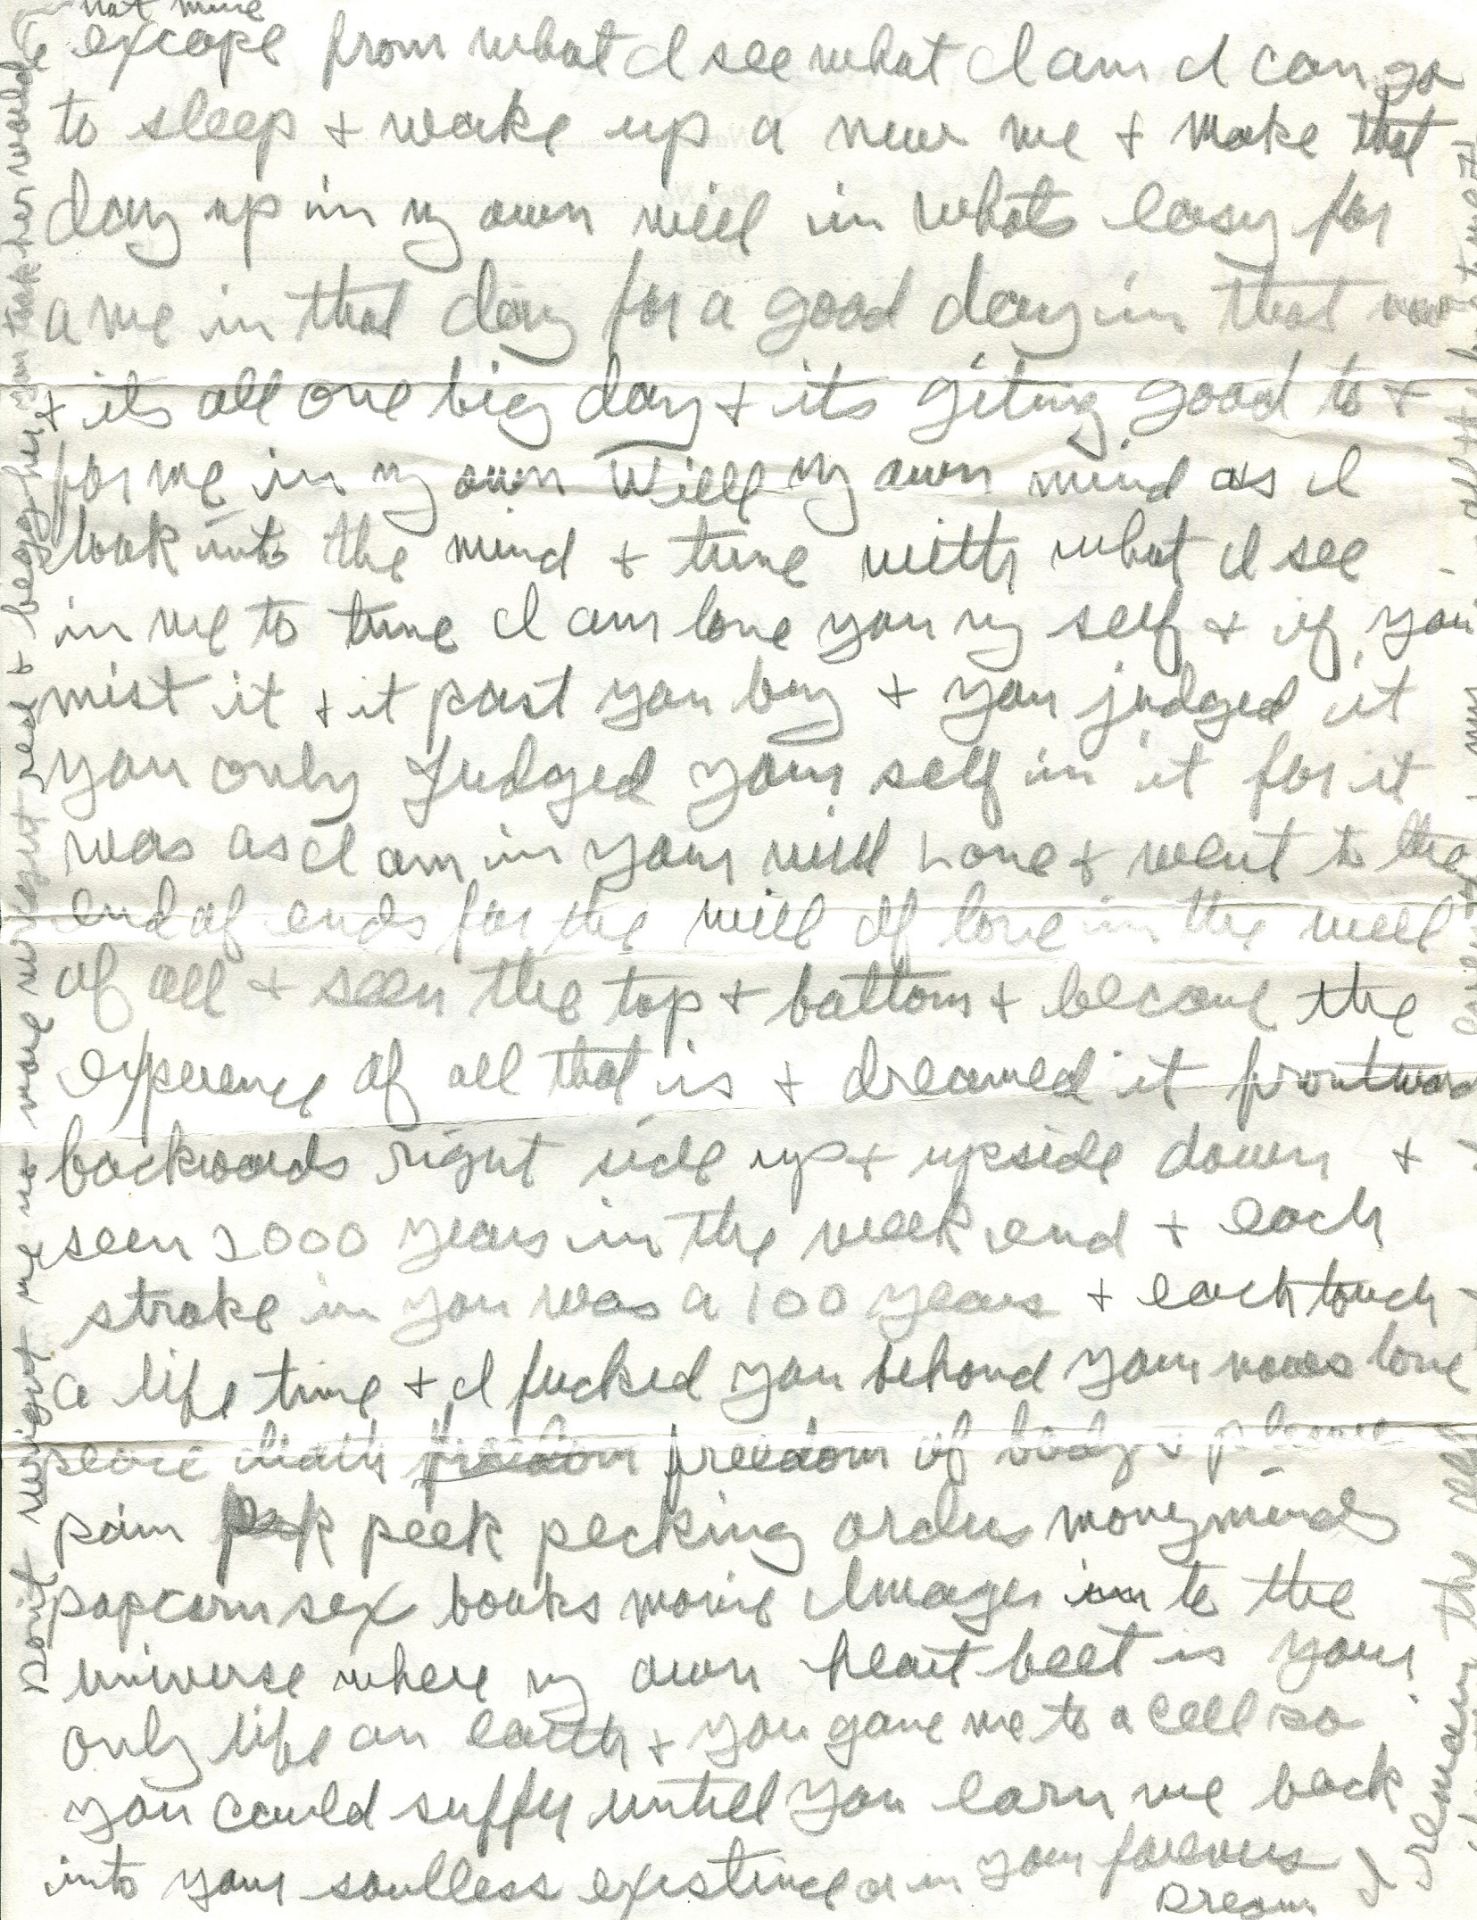 not mine
excape from what I see what I am I can go
to sleep + wake up a new me + make that
day up in my own will in whats easy for
a me in that day for a good day in that
+ its all one big day + its giting good to +
for me in my own will my own mind as I
look into the mind + tune with what I see
in me to tune I am love you my self + if you
mist it + it past you buy + you judged it
you only Judged your self in it for it
was as I am in your will Love + went to the
end of ends for the will of love in the will
of all + seen the top + bottom + become the
experence of all that is + dreamed it frontward
backwards right side up + upside down +
seen 2000 years in the week end + each
stroke in you was a 100 years + each touch
a life time + I fucked you behond your love
peace death freedom of body +
pain peek pecking orders money minds
popcorn sex books movie Images in to the
universe where my own heart beet is your
only life on earth + you gave me to a cell so
you could suffer untill you earn me back
into your soulless existence in your forevers
Dream
Dont me no more real + begg her you take her world
I remain the